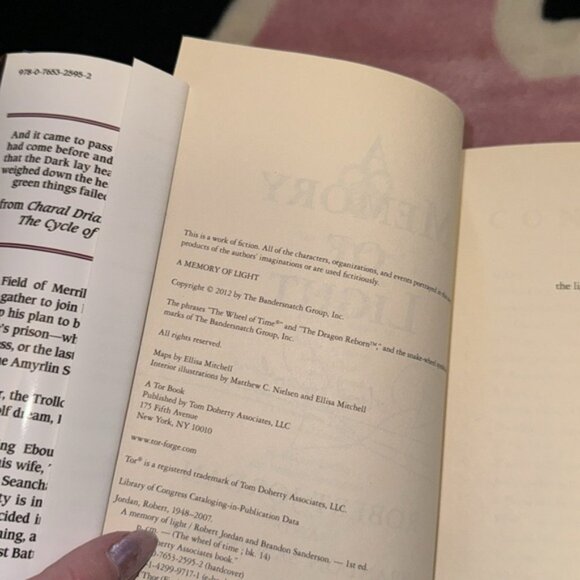 978-0-7653-2595-2
And it came to pass
had come before and
that the Dark lay
weighed down the
green things
from Charal
The Cycle of
Field of
gather to join
his plan to
prison
or the last
Amyrlin
the
dream,
his wife,
is in
MEMORY
LIGHT
This is a work of fiction. All of the characters, organizations, and events portrayed in this
products of the authors' imaginations or are used fictitiously.
A MEMORY OF LIGHT
Copyright © 2012 by The Bandersnatch Group, Inc.
The phrases "The Wheel of Time®" and "The Dragon Reborn™," and the snake-wheel
marks of The Bandersnatch Group, Inc.
All rights reserved.
Maps by Ellisa Mitchell
Interior illustrations by Matthew C. Nielsen and Ellisa Mitchell
A Tor Book
Published by Tom Doherty Associates, LLC
175 Fifth Avenue
New York, NY 10010
www.tor-forge.com
Tor® is a registered trademark of Tom Doherty Associates, LLC.
Library of Congress Cataloging-in-Publication Data
Jordan, Robert, 1948–2007.
A memory of light / Robert Jordan and Brandon Sanderson. — 1st ed.
p. cm. — (The wheel of time ; bk. 14)
Associates book."
(hardcover)
the